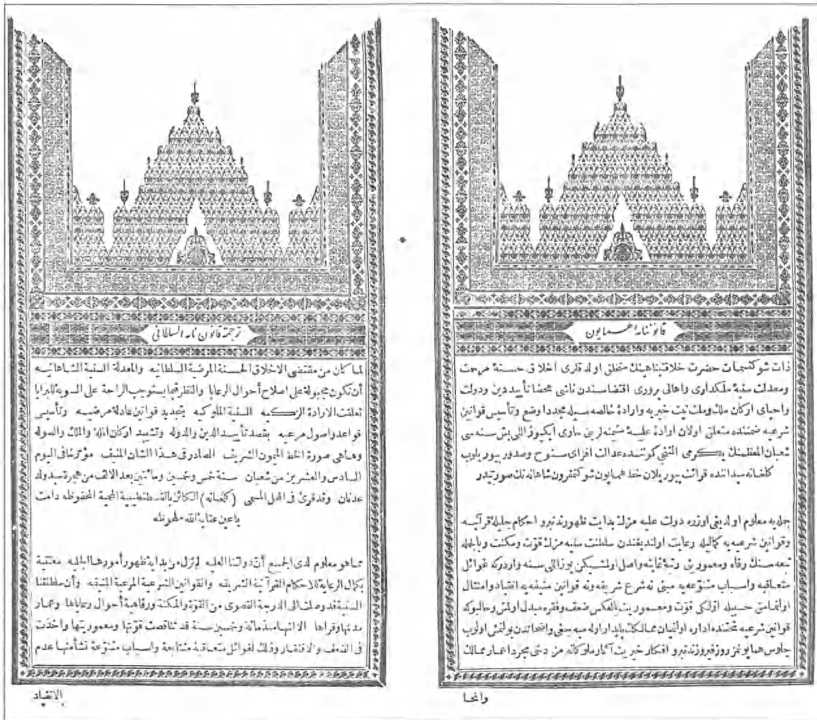 قانوننامهٔ همايون
ذات شوكتسمات حضرت خلافتپناهينك متخلق اولدقلرى اخلاق حسنهٔ مرحمت
ومعدلت سنيهٔ ملكدارى واهالى پرورى اقتضاسندن ناشى محضا تأييد دين ودولت
واحياى اركان ملك وملت نيت خيريه وارادهٔ خالصه سيله مجددا وضع وتأسيس قوانين
شرعيه ضمننده متعلق اولان ارادهٔ عليهٔ متضمن حاوى ايكيوز اللى بش سنه سى
شعبان المعظمنك يكرمى التنجى كوننده عدالت افزاى سنوح وصدور بيوريلوب
كلخانه ميداننده قرائت بيوريلان خط همايون شوكتمقرون شاهانه نك صورتيدر
جمله يه معلوم اولديغى اوزره دولت عليه مزك بدايت ظهورندنبرو احكام جليلهٔ قرآنيه
وقوانين شرعيه يه كماليله رعايت اولنديغندن سلطنت سنيه مزك قوت ومكنت وبالجمله
تبعه سنك رفاه ومعموريتى رتبهٔ غايته واصل اولمشيكن يوز اللى سنه واردركه غوائل
متعاقبه واسباب متنوعه يه مبنى نه شرع شريفه ونه قوانين منيفه يه انقياد وامتثال
اولنمامق حسبيله اولكى قوت ومعموريت بالعكس ضعف وفقره مبدل اولمش وحالبوكه
قوانين شرعيه تحتنده اداره اولنميان ممالكك پايدار اوله ميه جغى واضحاتدن بولنمش اولوب
جلوس همايونمز روز فيروزندنبرو افكار خيريت آثار ملوكانه مز دخى مجرد اعمار ممالك
وانحا
ترجمة قانون نامه السلطانى
لما كان من مقتضى الاخلاق الحسنة المرضية السلطانيه والمعدلة السنية الشاهانيه
أن تكون مجبولة على اصلاح أحوال الرعايا والنظر فيما يستوجب الراحة على السويه للبرايا
تعلقت الارادة الزكيه السنية الملوكيه بتجديد قوانين عادلة مرضيه وتأسيس
قواعد واصول مرعيه بقصد تأييد الدين والدوله وتشييد اركان الملة والملك والصوله
وها هى صورة الخط الهميون الشريف الصادر فى هذا الشان المنيف مؤرخا فى اليوم
السادس والعشرين من شعبان سنة خمس وخمسين ومائتين بعد الالف من هجرة سيد ولد
عدنان وقد قرئ فى المحل المسمى (كلخانه) الكائن بالقسطنطينية المحمية المحفوظه دامت
باعين عناية الله ملحوظه
مما هو معلوم لدى الجميع أن دولتنا العليه لم تزل من بداية ظهور أمورها الجليه معتنية
بكمال الرعاية للاحكام القرآنية الشريفه والقوانين الشرعية المرعية المنيفه وأن سلطنتنا
السنية قد وصلت الى الدرجة القصوى من القوة والمكنة ورفاهية أحوال رعاياها وعمار
مدنها وقراها الا انه منذ مائة وخمسين سنة قد تناقصت قوتها ومعموريتها واخذت
فى الضعف والافتقار وذلك لغوائل متعاقبة متتابعة واسباب متنوعة نشأ منها عدم
الانقياد